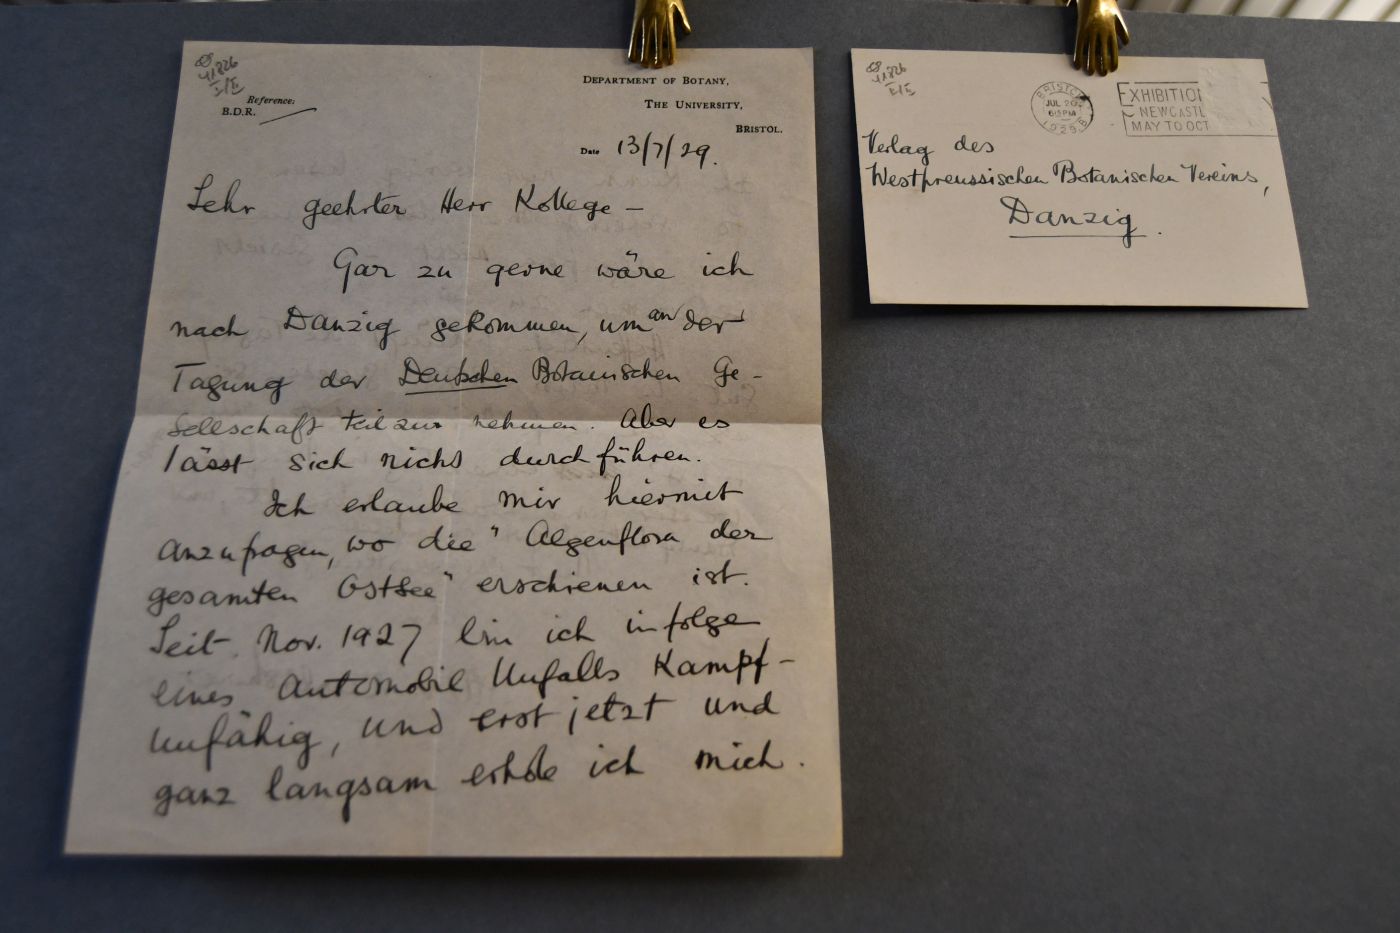 Reference:
B.D.R.
DEPARTMENT OF BOTANY,
THE UNIVERSITY,
BRISTOL.
Date 13/7/29.
Sehr geehrter Herr Kollege –
Gar zu gerne wäre ich
nach Danzig gekommen, um an der
Tagung der Deutschen Botanischen Ge-
sellschaft teil zu nehmen. Aber es
lässt sich nicht durchführen.
Ich erlaube mir hiermit
anzufragen, wo die "Algenflora der
gesamten Ostsee" erschienen ist.
Seit Nov. 1927 bin ich infolge
eines Automobil Unfalls Kampf-
unfähig, und erst jetzt und
ganz langsam erhole ich mich.
BRISTOL
JUL 20
6:15 PM
1929
EXHIBITION
NEWCASTL
MAY TO OCT
Verlag des
Westpreussischen Botanischen Vereins,
Danzig.